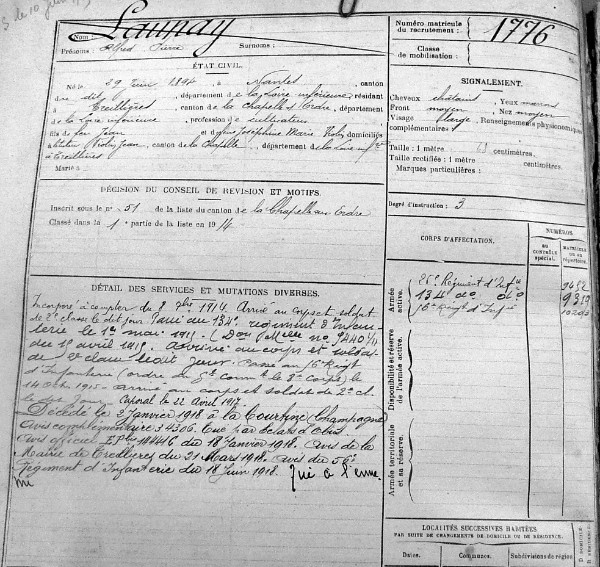 Nom : Launay
Prénoms : Alfred Pierre Surnoms :
ÉTAT CIVIL.
Né le 29 Juin 1894, à Nantes, canton
du dit, département de la Loire inférieure, résidant
à Treillières, canton de la Chapelle s/ Erdre, département
de la Loire inférieure, profession de cultivateur
fils de feu Jean et de Joséphine Marie domiciliés
à Treillières, canton de la Chapelle, département de la Loire infre
Marié à
DÉCISION DU CONSEIL DE REVISION ET MOTIFS.
Inscrit sous le n° 51 de la liste du canton de la Chapelle sur Erdre
Classé dans la 1 partie de la liste en 1914
DÉTAIL DES SERVICES ET MUTATIONS DIVERSES.
Incorporé à compter du 8 7bre 1914. Arrivé au Corps et soldat
de 2e classe le dit jour. Passé au 134e régiment d'Infan-
terie le 1er mai 1915.
du 1er avril 1915. Arrivé au corps et soldat
de 2e classe le dit jour. Passé au 56e Regt
d'Infanterie (ordre du Gal comt le 8e corps) le
14 Obre 1915 arrivé au corps et soldat de 2e cl.
le dit jour. Caporal le 22 Avril 1917.
Décédé le 2 janvier 1918 à la Courtine (Champagne)
avis complémentaire 34306. Tué par éclats d'Obus.
avis officiel 18 Janvier 1918. avis de la
Mairie de Treillières du 21 Mars 1918. avis du 56e
régiment d'Infanterie du 18 Juin 1918. Tué à l'enne
mi
Numéro matricule du recrutement : 1776
Classe de mobilisation :
SIGNALEMENT.
Cheveux châtains, Yeux marrons
Front moyen, Nez moyen
Visage large, Renseignements physionomiques
complémentaires :
Taille : 1 mètre 63 centimètres.
Taille rectifiée : 1 mètre centimètres.
Marques particulières :
Degré d'instruction : 3
CORPS D'AFFECTATION.
NUMÉROS
AU CONTRÔLE spécial.
MATRICULE ou au répertoire.
Armée active.
Régiment d'Infie
134e do do
56e Regt d'Infie
Disponibilité et réserve de l'armée active.
Armée territoriale et sa réserve.
LOCALITÉS SUCCESSIVES HABITÉES
PAR SUITE DE CHANGEMENTS DE DOMICILE OU DE RÉSIDENCE.
Dates. Communes. Subdivisions de région.